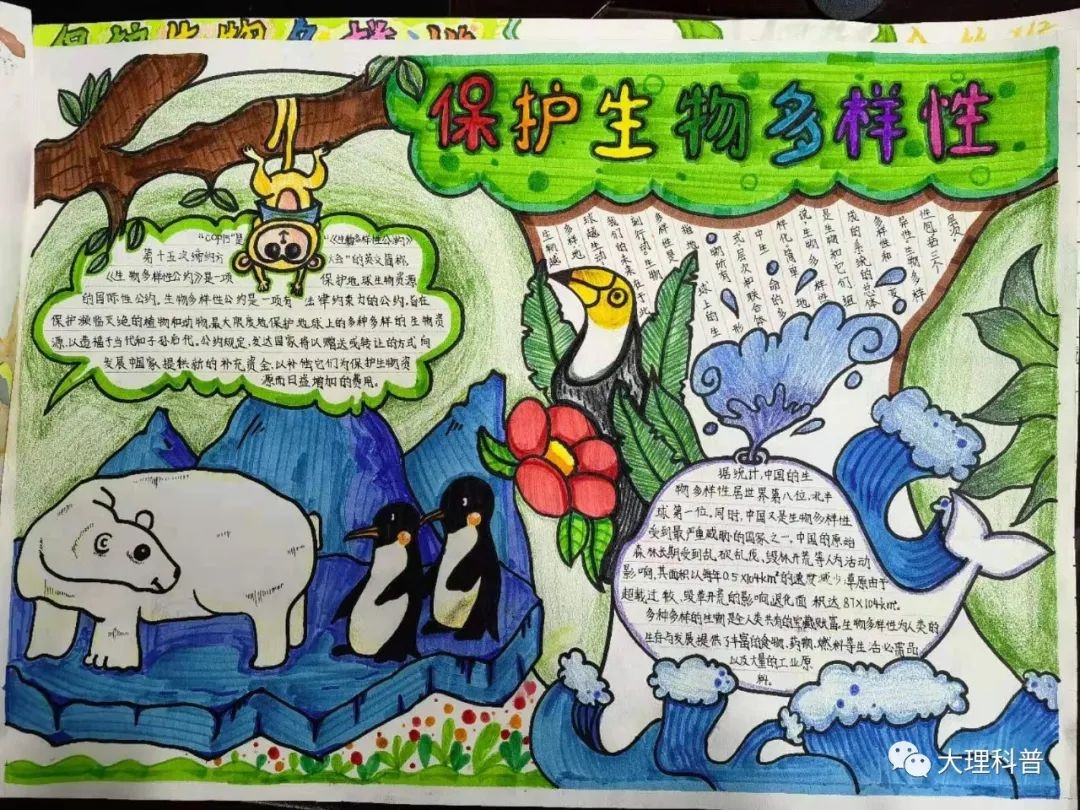 保护生物多样性
"COP15"是"《生物多样性公约》
第十五次缔约方大会"的英文简称,
《生物多样性公约》是一项保护地球生物资源
的国际性公约,生物多样性公约是一项有法律约束力的公约,旨在
保护濒临灭绝的植物和动物,最大限度地保护地球上的多种多样的生物资
源,以造福于当代和子孙后代,公约规定,发达国家将以赠送或转让的方式向
发展中国家提供新的补充资金,以补偿它们为保护生物资
源而日益增加的费用。
生物越
多样,地
球越生动
我们的未来在于此
刻行动。生物
多样性是
指地
球上的生
物所有形
式层次和联合体
中生命的多
样化。简单地
说,生物多样性
是生物和它们组
的系统的总体
多样性和变
异性,生物多样
性包括三个
层次。
据统计,中国的生
物多样性居世界第八位,北半
球第一位。同时,中国又是生物多样性
受到最严重威胁的国家之一,中国的原始
森林长期受到乱砍乱伐、毁林开荒等人为活动
影响,其面积以每年0.5X104km²的速度减少;草原由于
超载过牧、毁草开荒的影响,退化面积达87X104km².
多种多样的生物是全人类共有的宝藏财富,生物多样性为人类的
生存与发展提供了丰富的食物、药物、燃料等生活必需品
以及大量的工业原
料。
大理科普